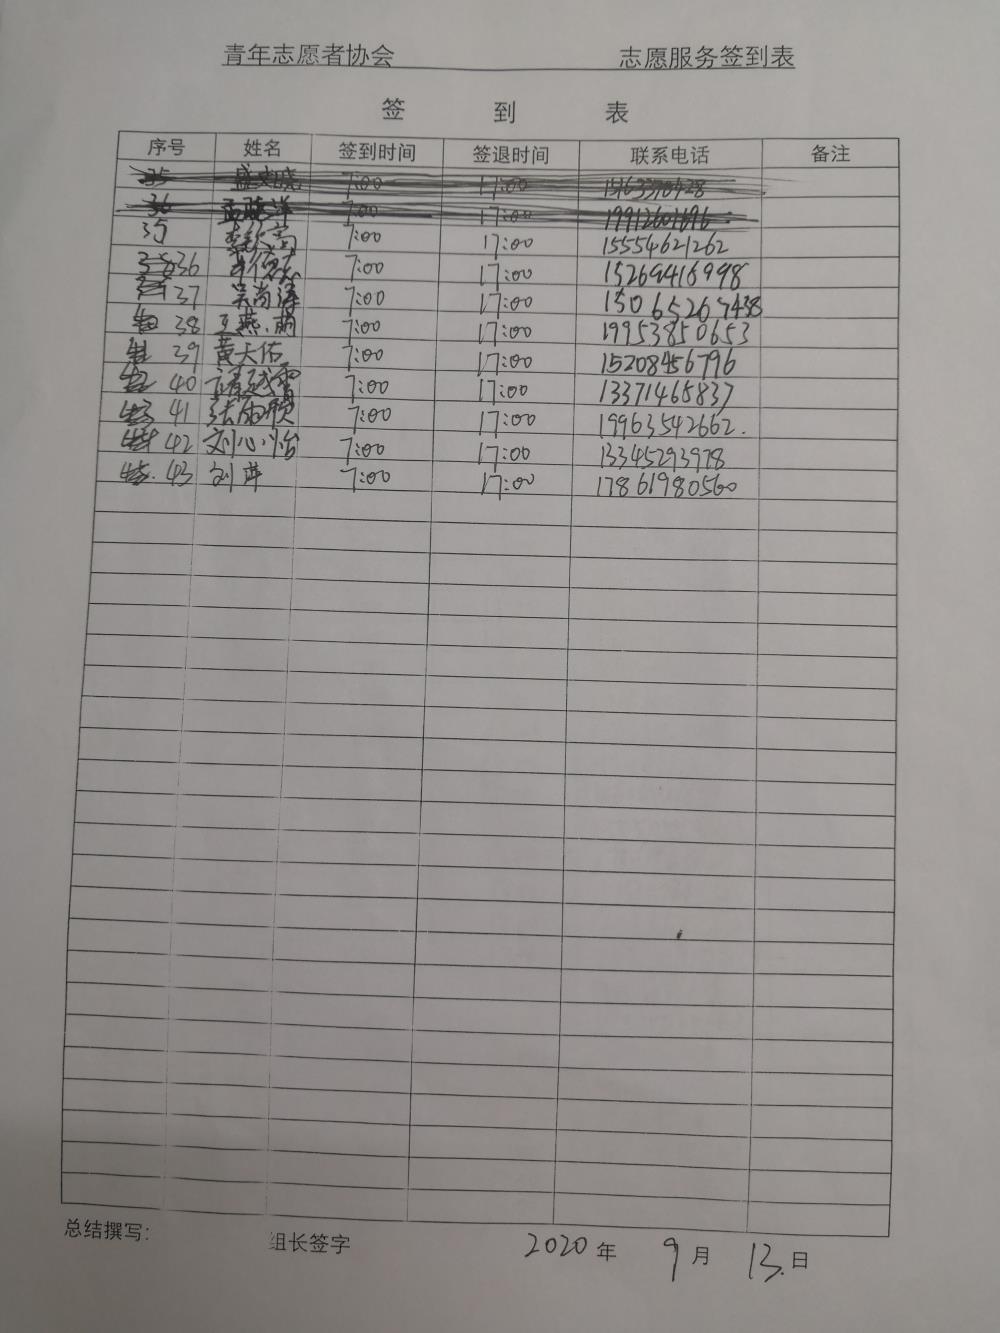 青年志愿者协会 志愿服务签到表
签 到 表
序号 姓名 签到时间 签退时间 联系电话 备注
35 7:00 17:00
36 7:00 17:00 19912601696
35 7:00 17:00 15554621262
36 7:00 17:00 15269416998
37 吴尚泽 7:00 17:00 15065267438
38 王燕萌 7:00 17:00 19953850653
39 黄天佑 7:00 17:00 15208456796
40 7:00 17:00 13371465837
41 张雨欣 7:00 17:00 19963542662.
42 刘心怡 7:00 17:00 13345293978
43 刘萍 7:00 17:00 17861980560
总结撰写: 组长签字 2020年 9月 13.日